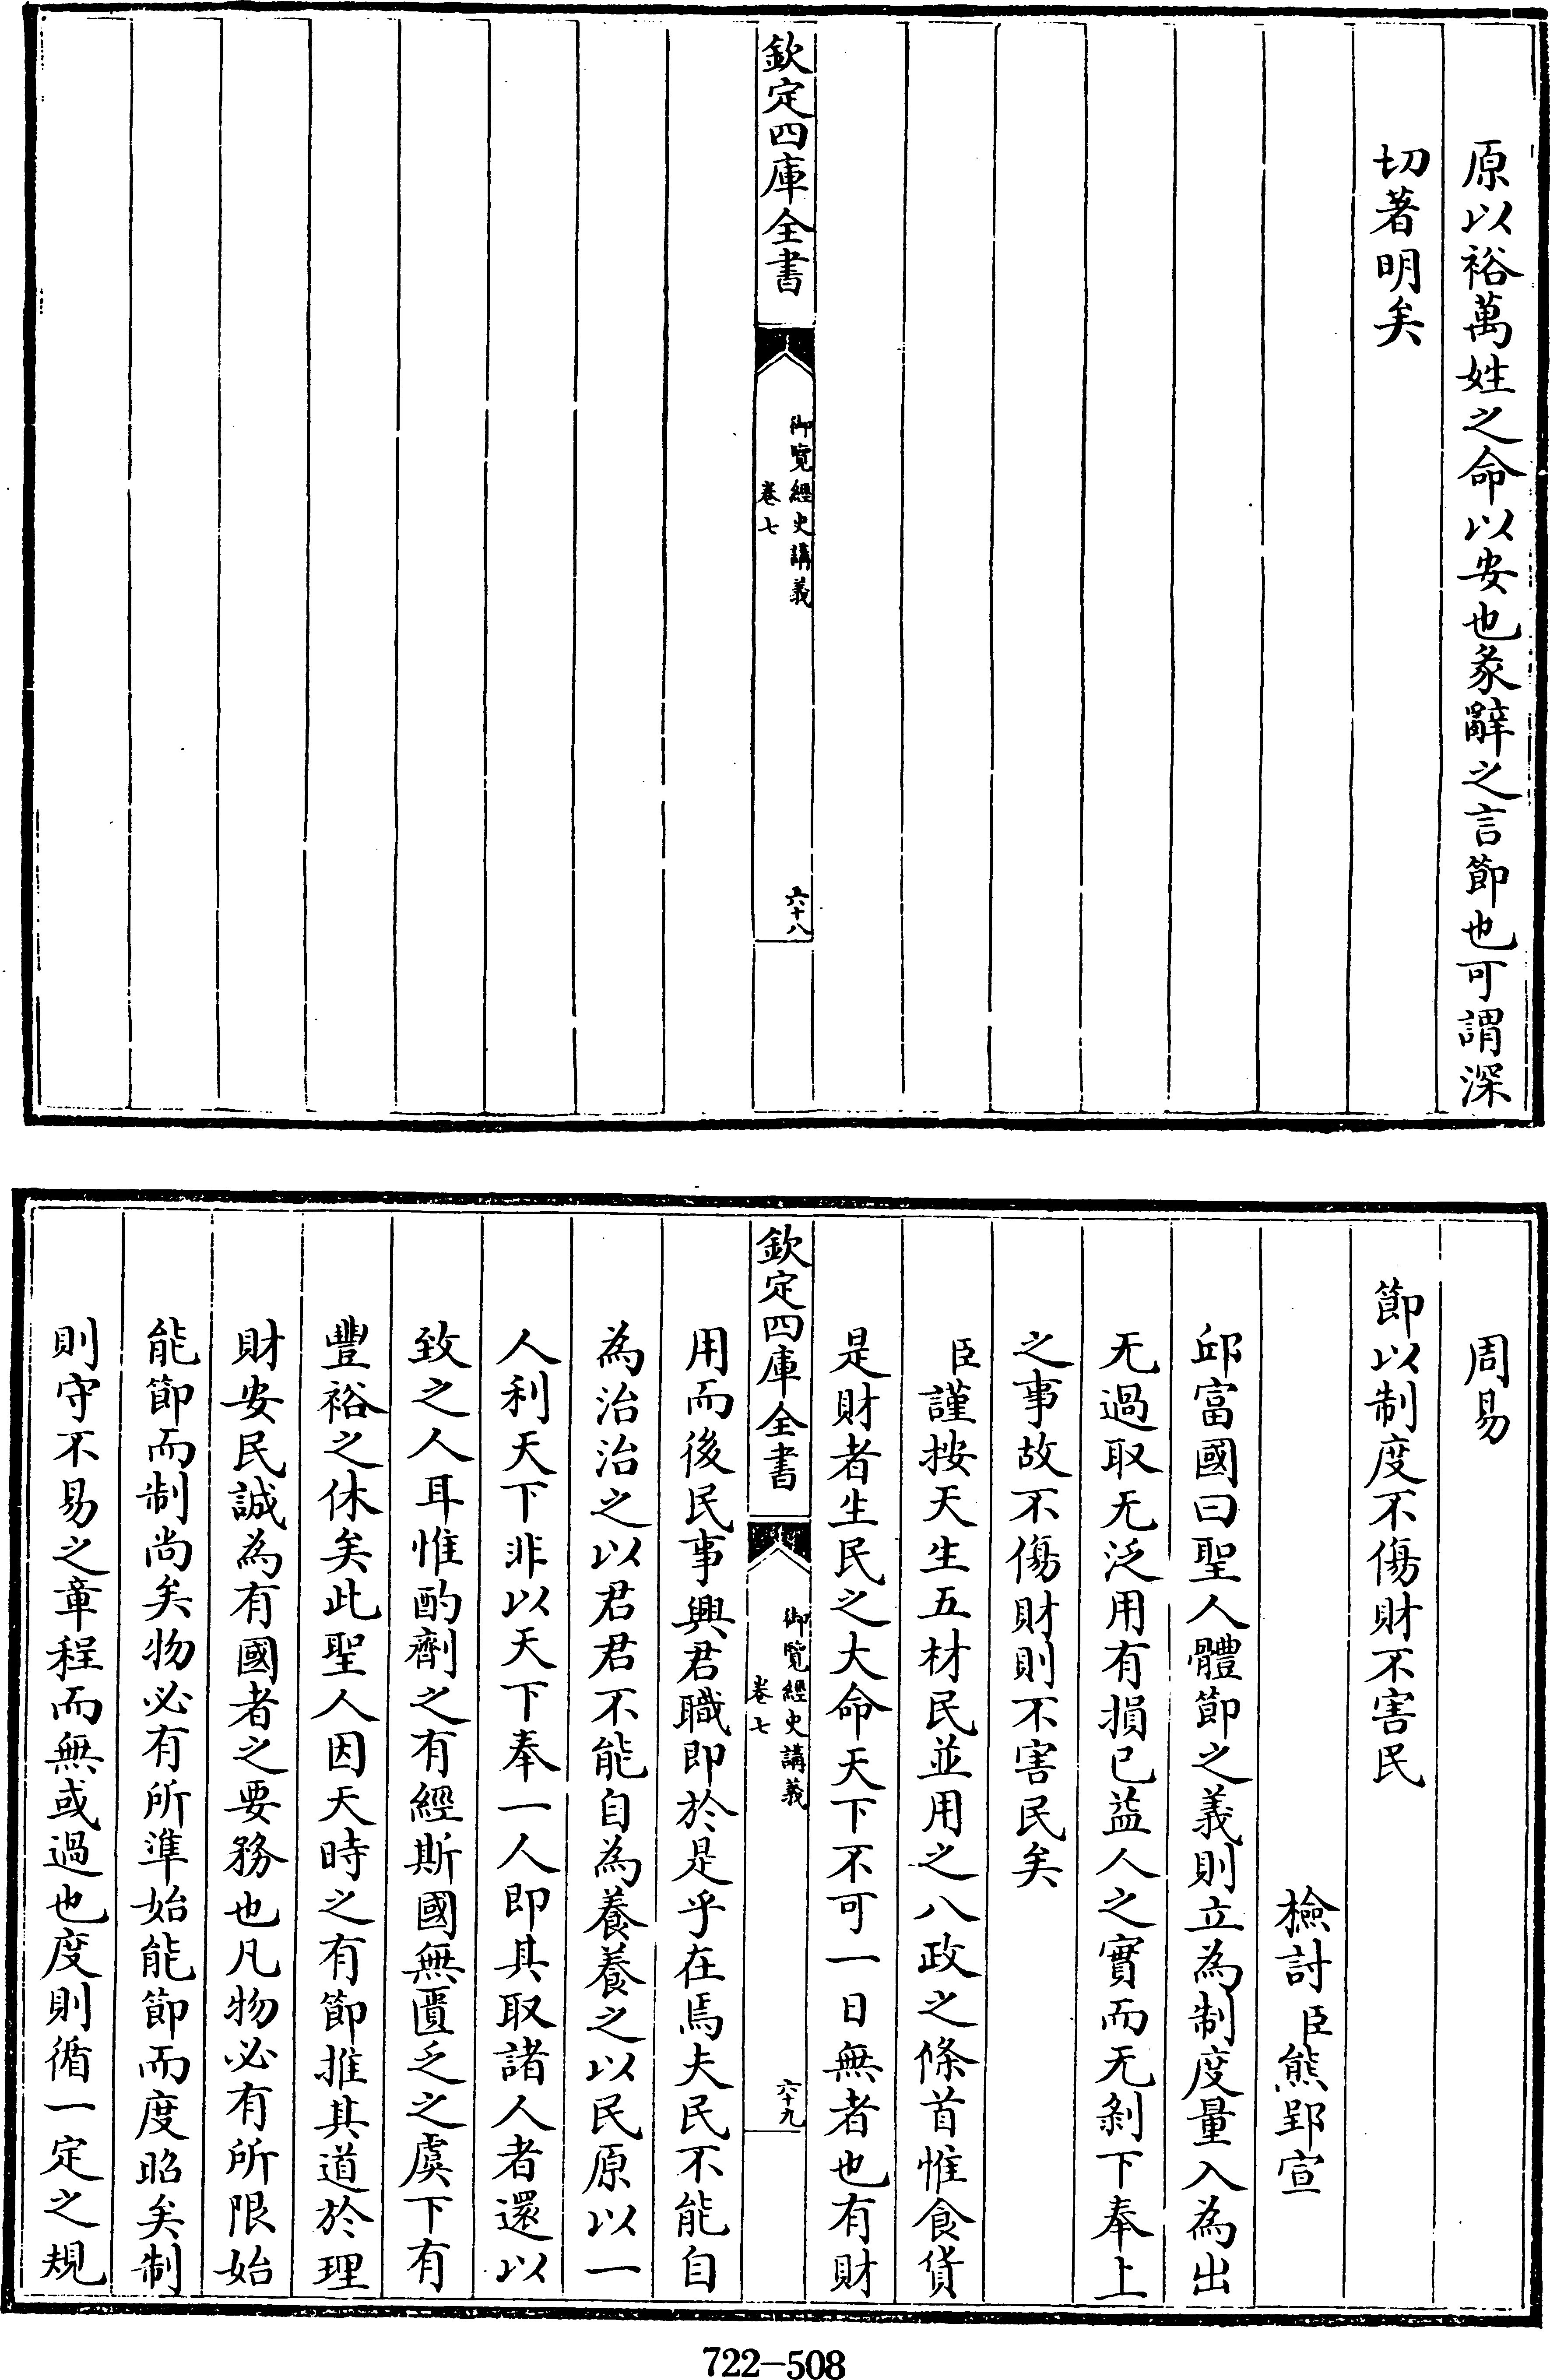 原以裕萬姓之命以安也彖辭之言節也可謂深
切著明矣
欽定四庫全書
御覽經史講義
卷七
六十八
周易
節以制度不傷財不害民
檢討臣熊郢宣
邱富國曰聖人體節之義則立為制度量入為出
无過取无泛用有損已益人之實而无剝下奉上
之事故不傷財則不害民矣
臣謹按天生五材民並用之八政之條首惟食貨
是財者生民之大命天下不可一日無者也有財
欽定四庫全書
御覽經史講義
卷七
六十九
用而後民事興君職即於是乎在焉夫民不能自
為治治之以君君不能自為養養之以民原以一
人利天下非以天下奉一人即其取諸人者還以
致之人耳惟酌劑之有經斯國無匱乏之虞下有
豐裕之休矣此聖人因天時之有節推其道於理
財安民誠為有國者之要務也凡物必有所限始
能節而制尚矣物必有所準始能節而度昭矣制
則守不易之章程而無或過也度則循一定之規
722-508